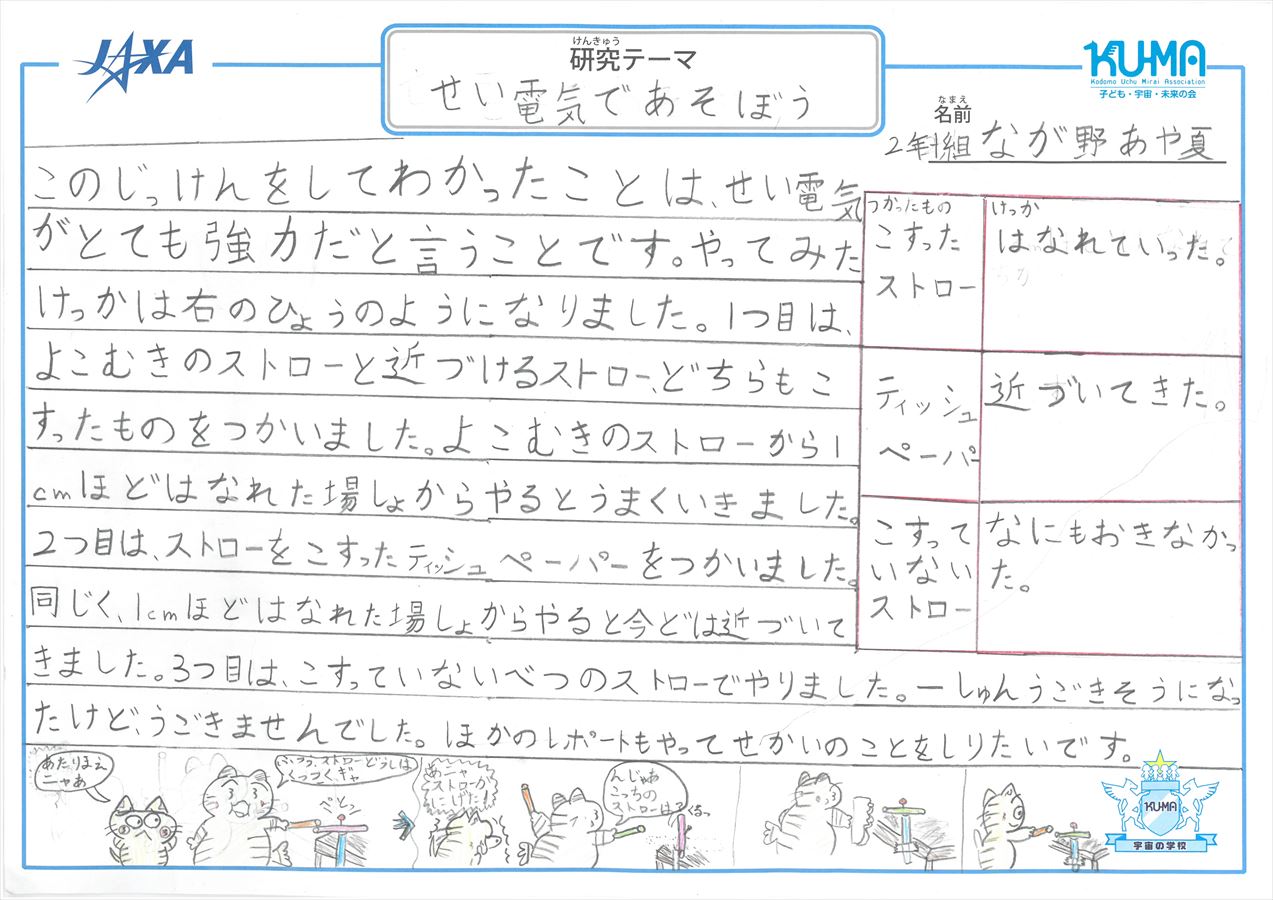 JAXA
けんきゅう
研究テーマ
せい電気であそぼう
KUMA
Kodomo Uchu Mirai Association
子ども・宇宙・未来の会
なまえ
名前
2年 組 なが野あや夏
このじっけんをしてわかったことは、せい電気
がとても強力だと言うことです。やってみた
けっかは右のひょうのようになりました。1つ目は、
よこむきのストローと近づけるストロー、どちらもこ
すったものをつかいました。よこむきのストローから1
cmほどはなれた場しょからやるとうまくいきました。
2つ目は、ストローをこすったティッシュペーパーをつかいました。
同じく、1cmほどはなれた場しょからやると今どは近づいて
きました。3つ目は、こすっていないべつのストローでやりました。一しゅんうごきそうになっ
たけど、うごきませんでした。ほかのレポートもやってせかいのことをしりたいです。
つかったもの
けっか
こすった
ストロー
はなれていった。
ティッシュ
ペーパー
近づいてきた。
こすって
いない
ストロー
なにもおきなかっ
た。
あたりまえ
ニャあ
ふつう、ストローどうしは
くっつく、ギャ
ぺとっ
あニャ
ストローが
にげた!
んじゃあ
こっちの
ストローは?
KUMA
宇宙の学校